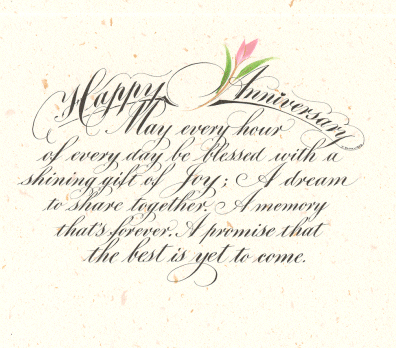 Happy Anniversary
May every hour
of every day be blessed with a
shining gift of Joy; A dream
to share together. A memory
that's forever. A promise that
the best is yet to come.